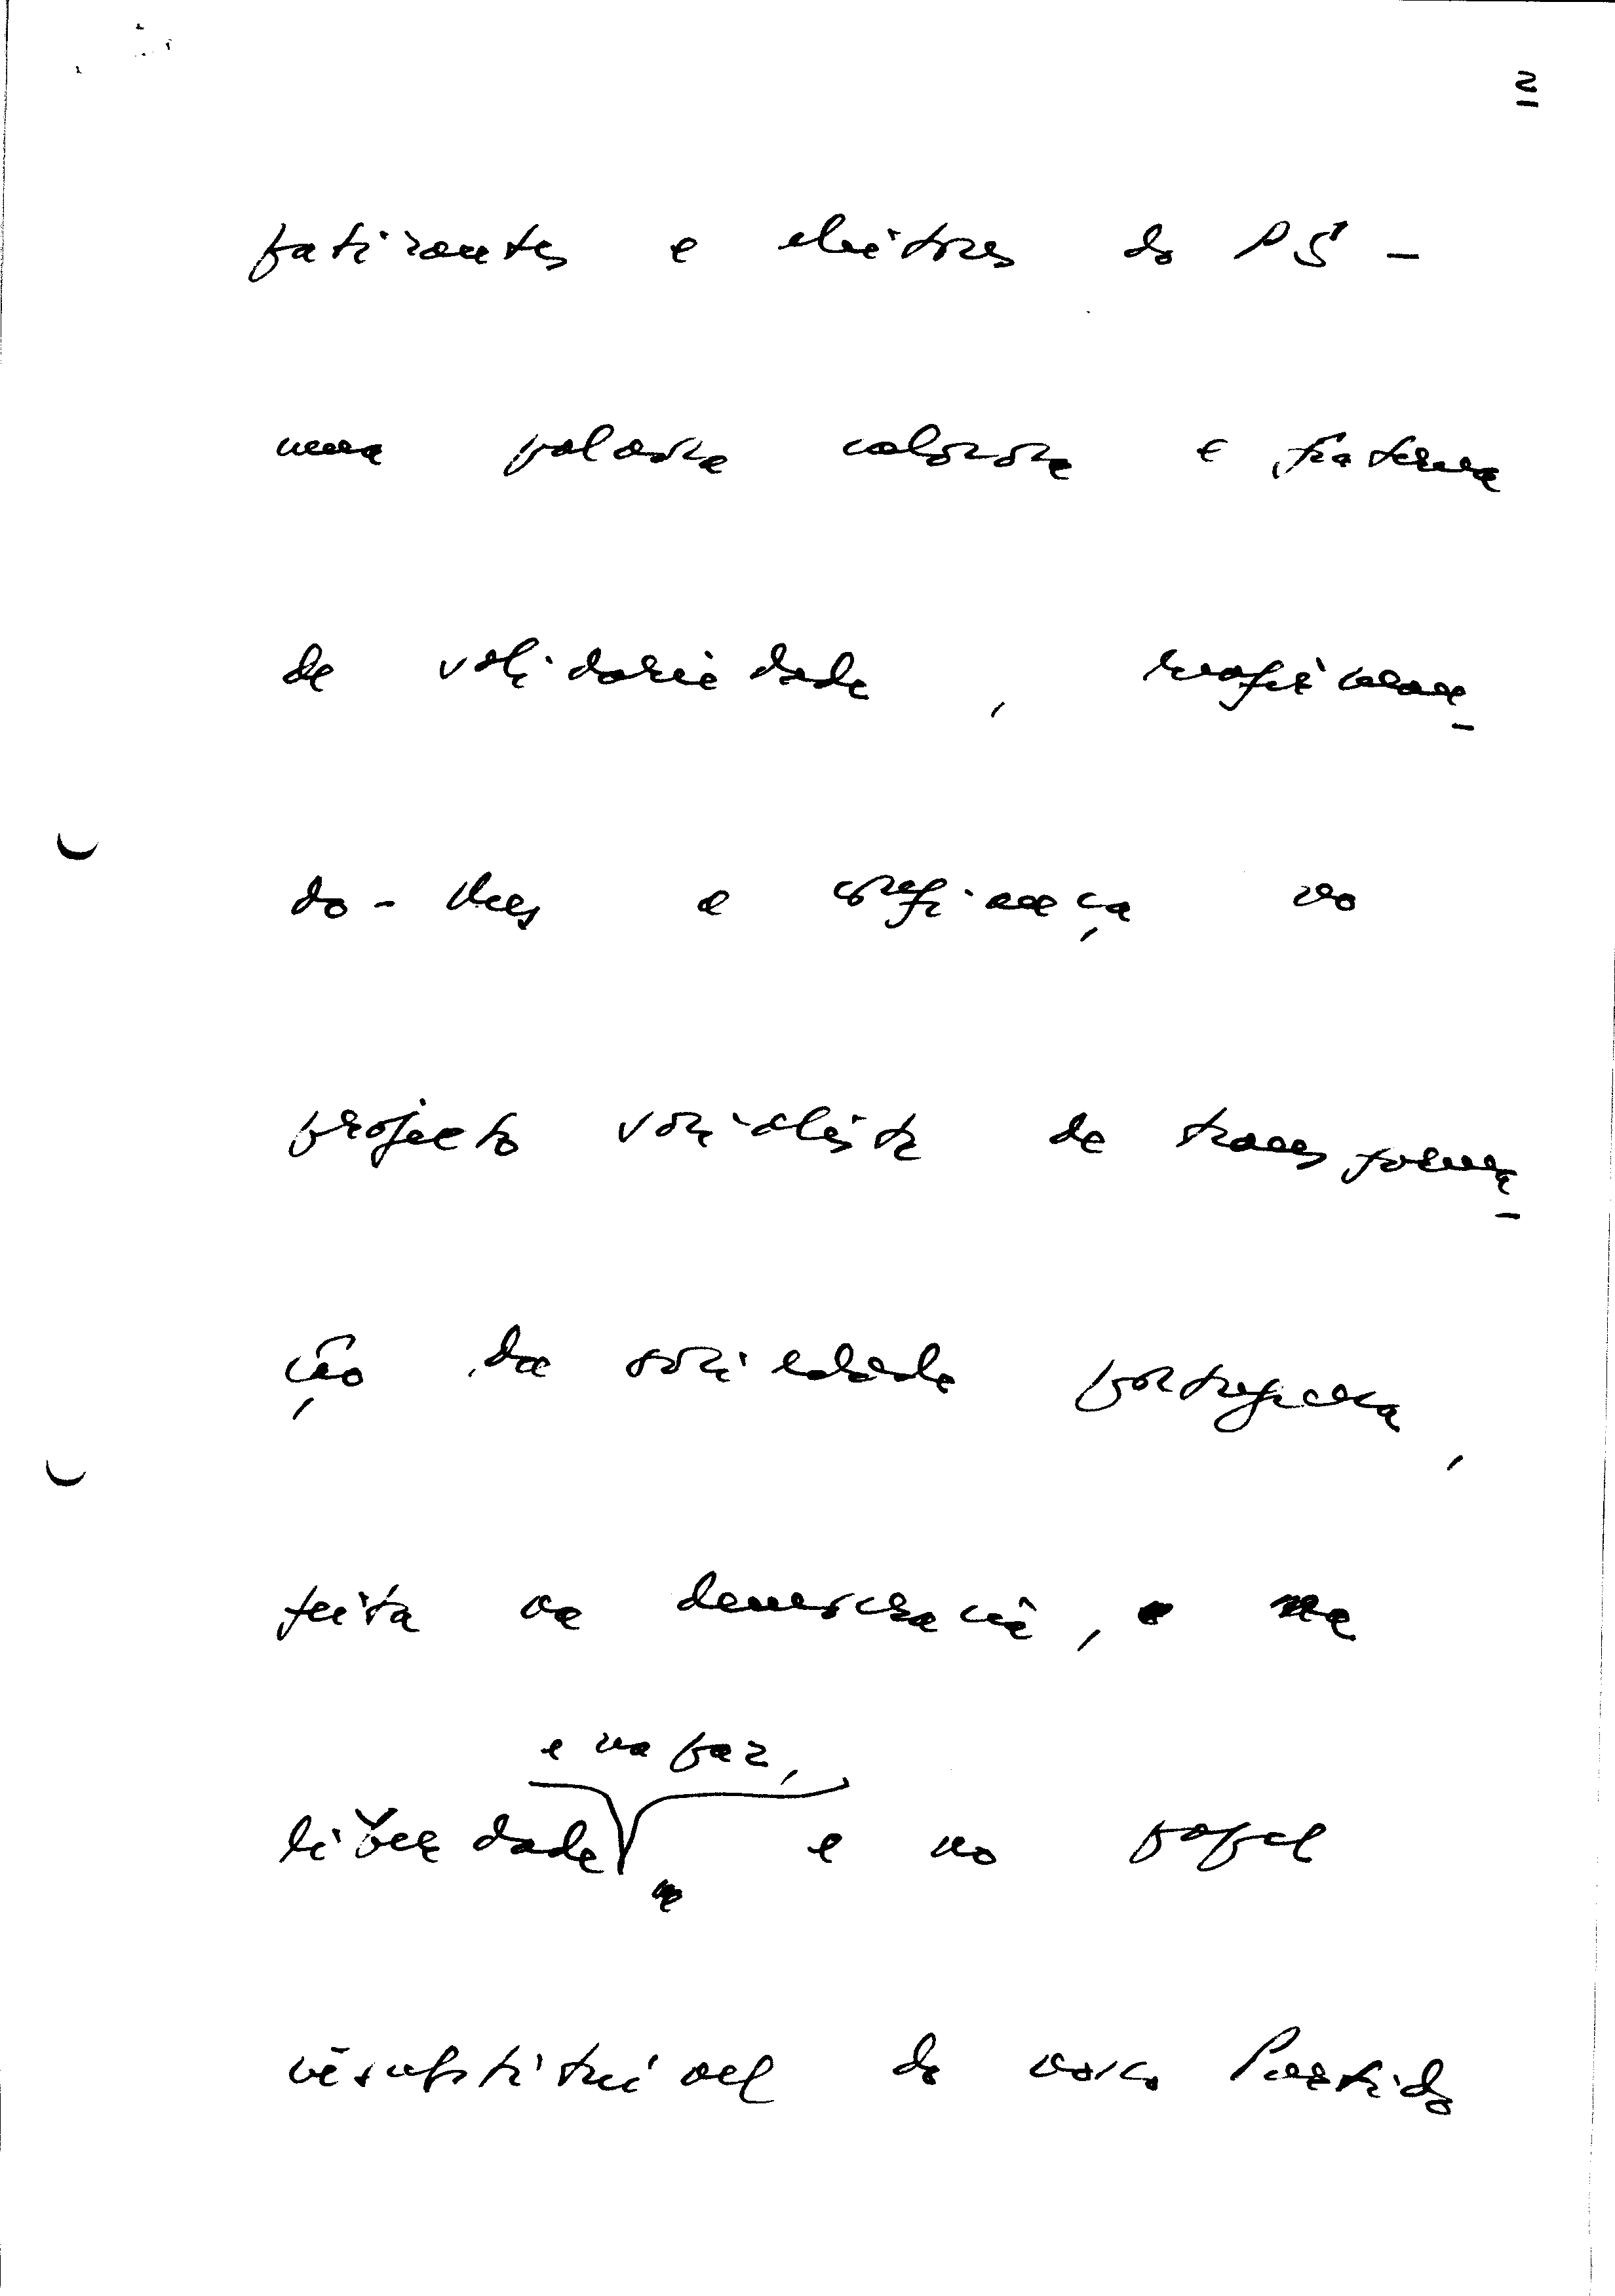 2
patizantes e eleitores do PS -
uma palavra calorosa e fraterna
de solidariedade, reafirman-
do-lhes a confiança no
projecto socialista de transforma-
ção da sociedade portuguesa,
feita na democracia, na
e na paz,
liberdade e no papel
insubstituível do nosso Partido